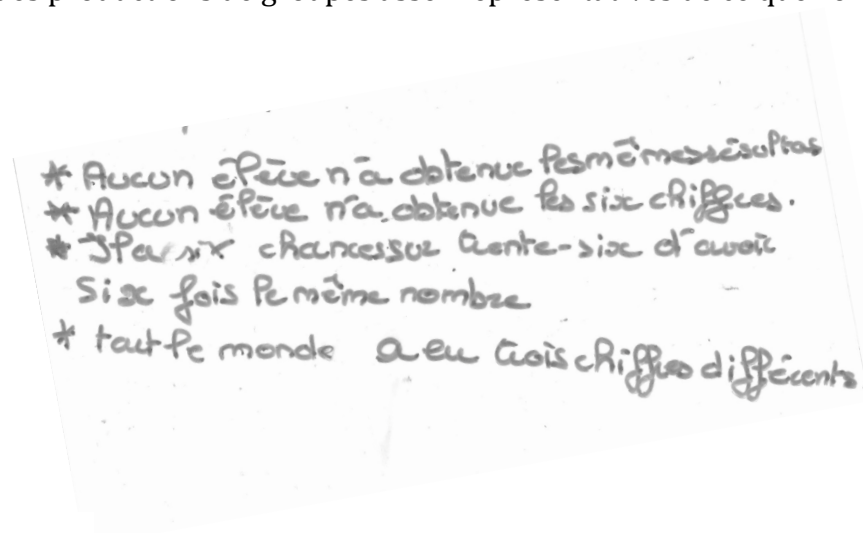 * Aucun élève n'a obtenue les mêmes résultas
* Aucun élève n'a obtenue les six chiffres.
* Il a six chances sur trente-six d'avoir
six fois le même nombre
* tout le monde a eu trois chiffres différents